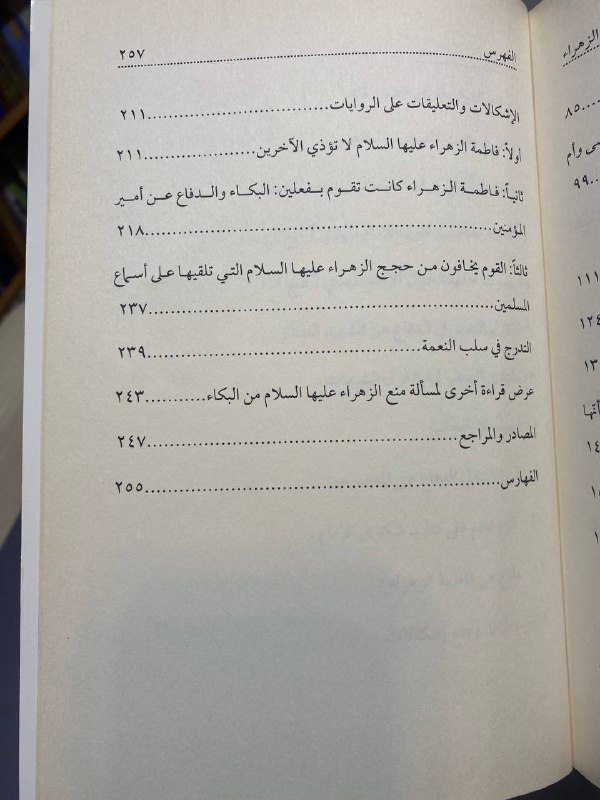 الفهرس ٢٥٧
الإشكالات والتعليقات على الروايات ٢١١
أولاً: فاطمة الزهراء عليها السلام لا تؤذي الآخرين ٢١١
ثانياً: فاطمة الزهراء كانت تقوم بفعلين: البكاء والدفاع عن أمير
المؤمنين ٢١٨
ثالثاً: القوم يخافون من حجج الزهراء عليها السلام التي تلقيها على أسماع
المسلمين ٢٣٧
التدرج في سلب النعمة ٢٣٩
عرض قراءة أخرى لمسألة منع الزهراء عليها السلام من البكاء ٢٤٣
المصادر والمراجع ٢٤٧
الفهارس ٢٥٥
الزهراء
٨٥
وأم
٩٩
١١١
١٢٤